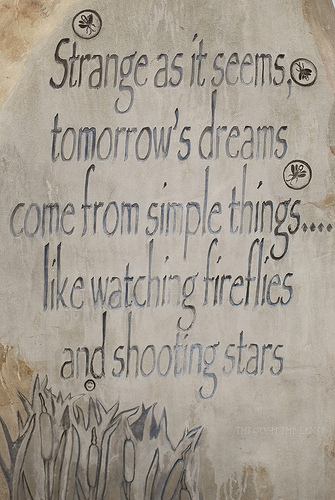 Strange as it seems,
tomorrow's dreams
come from simple things....
like watching fireflies
and shooting stars